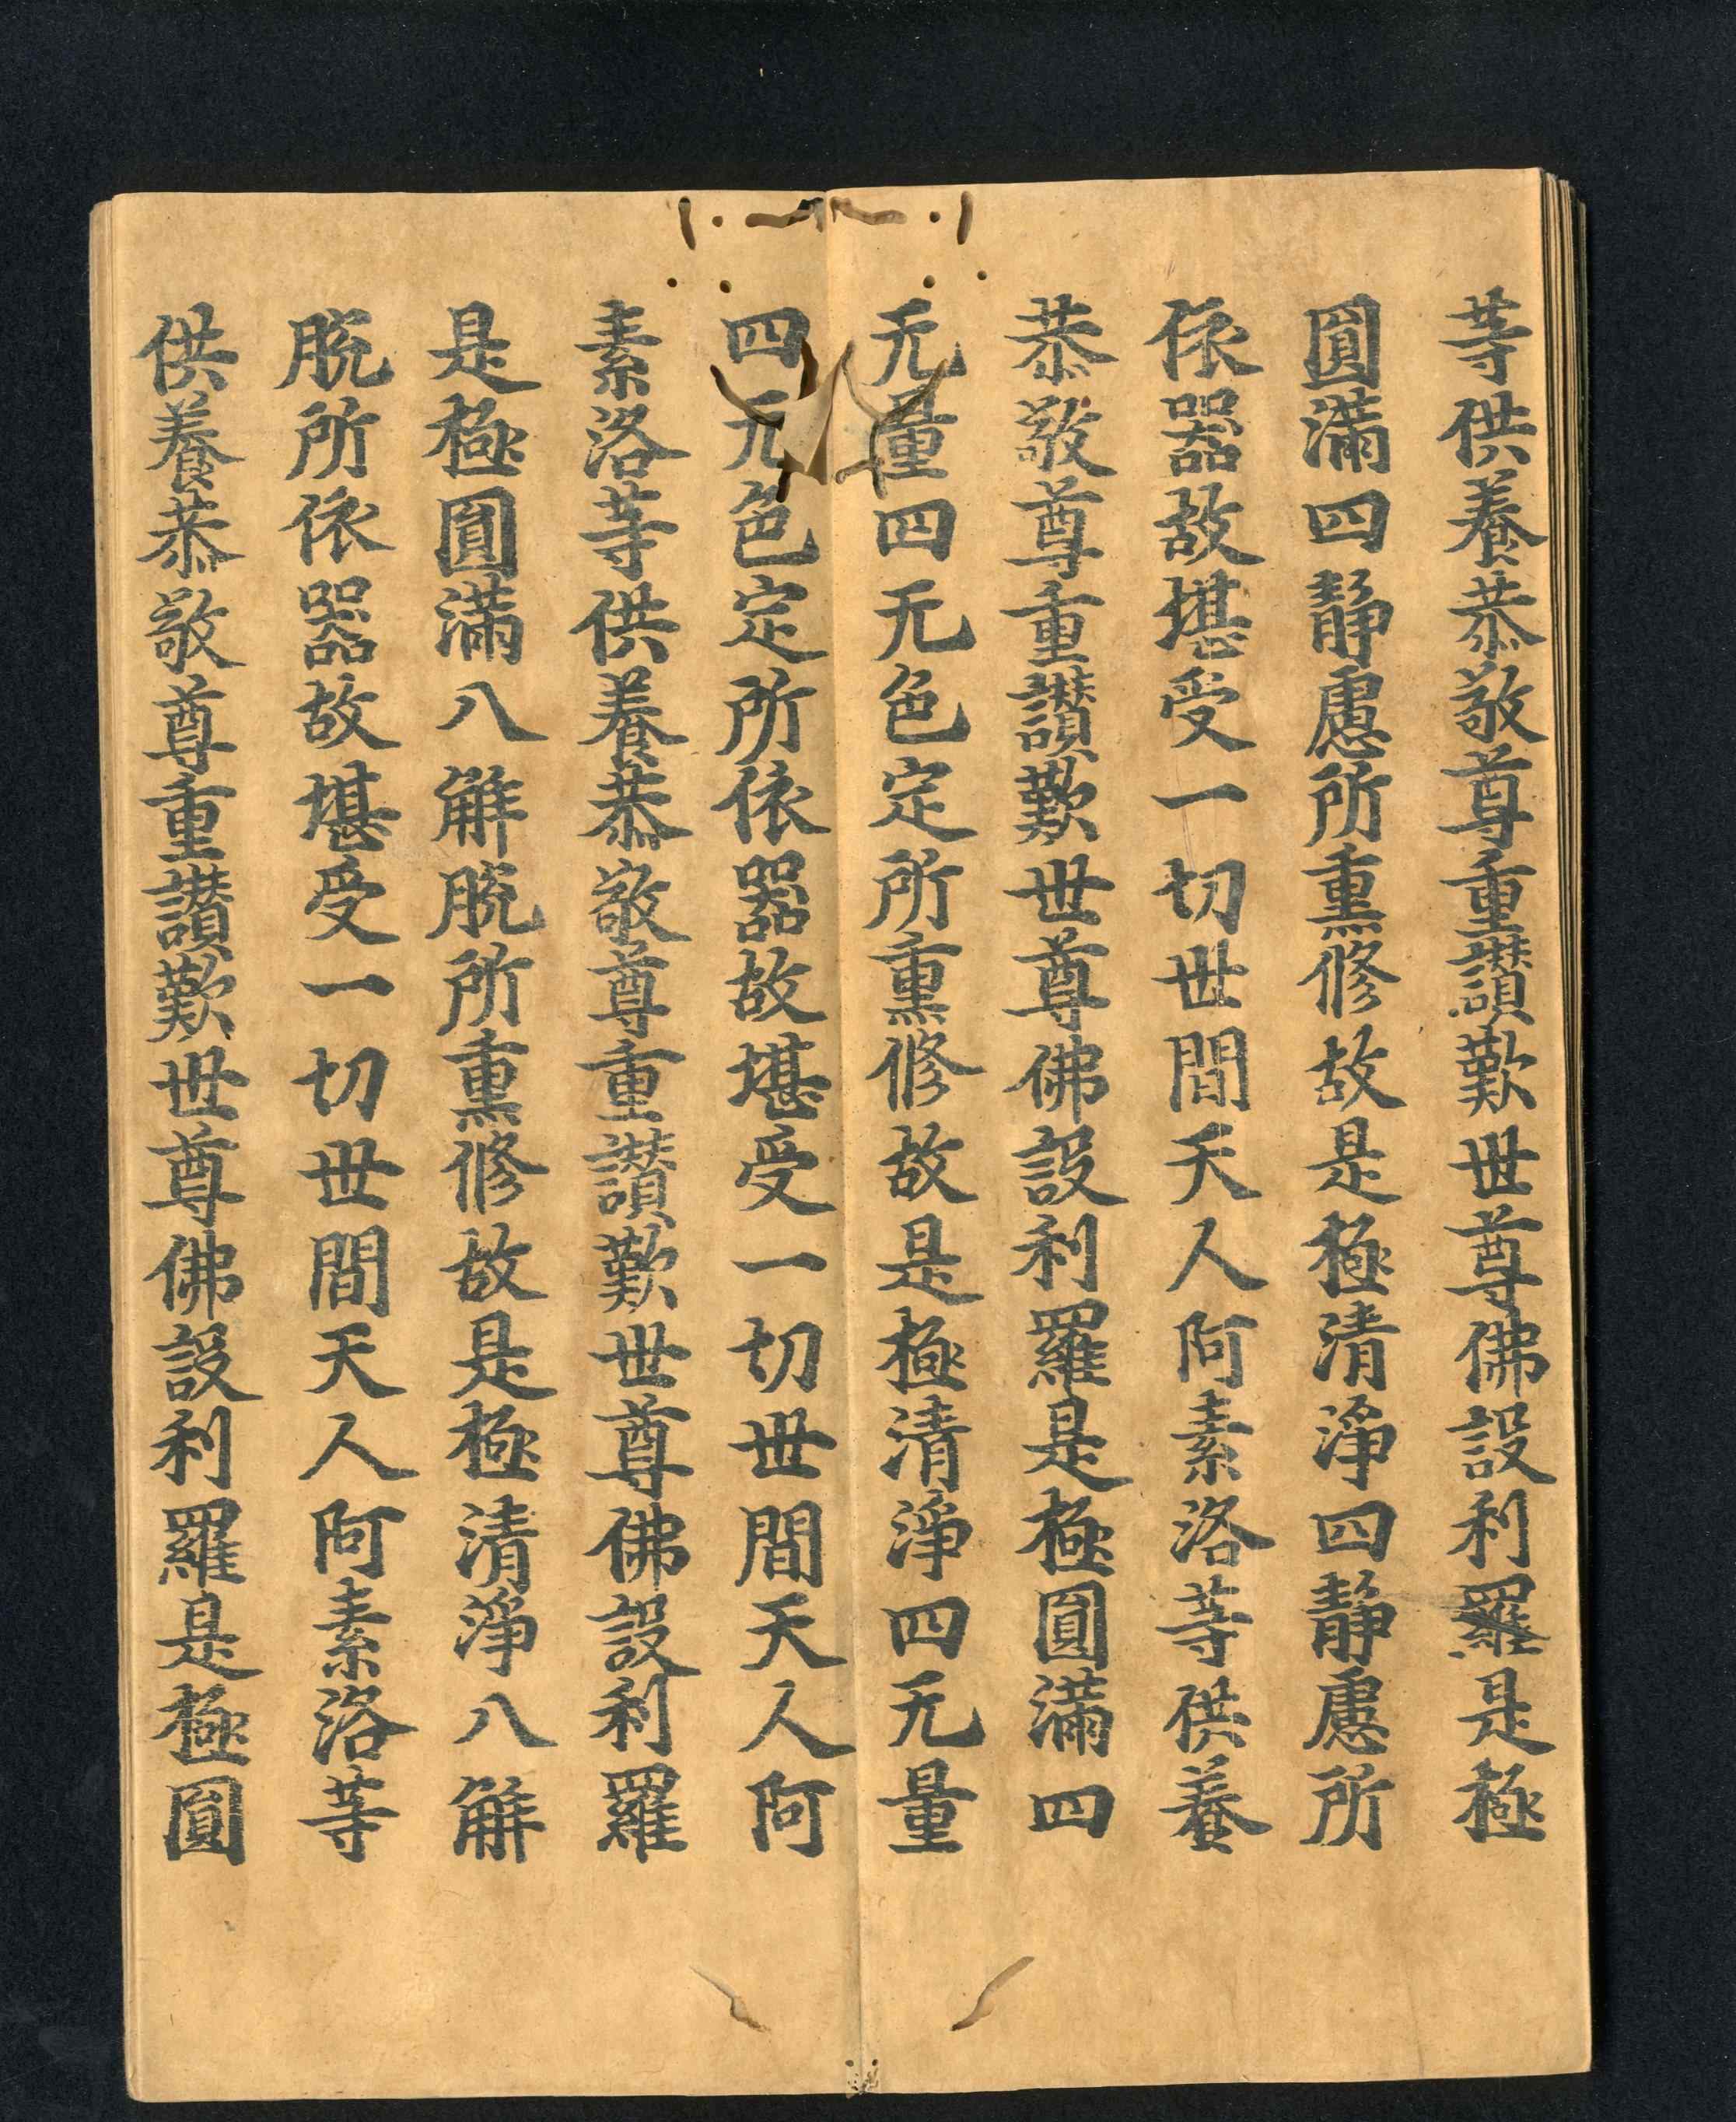 等供養恭敬尊重讃歎世尊佛設利羅是極
圓滿四静慮所熏修故是極清淨四静慮所
依器故堪受一切世間天人阿素洛等供養
恭敬尊重讃歎世尊佛設利羅是極圓滿四
无量四无色定所熏修故是極清淨四无量
四无色定所依器故堪受一切世間天人阿
素洛等供養恭敬尊重讃歎世尊佛設利羅
是極圓滿八解脫所熏修故是極清淨八解
脫所依器故堪受一切世間天人阿素洛等
供養恭敬尊重讃歎世尊佛設利羅是極圓